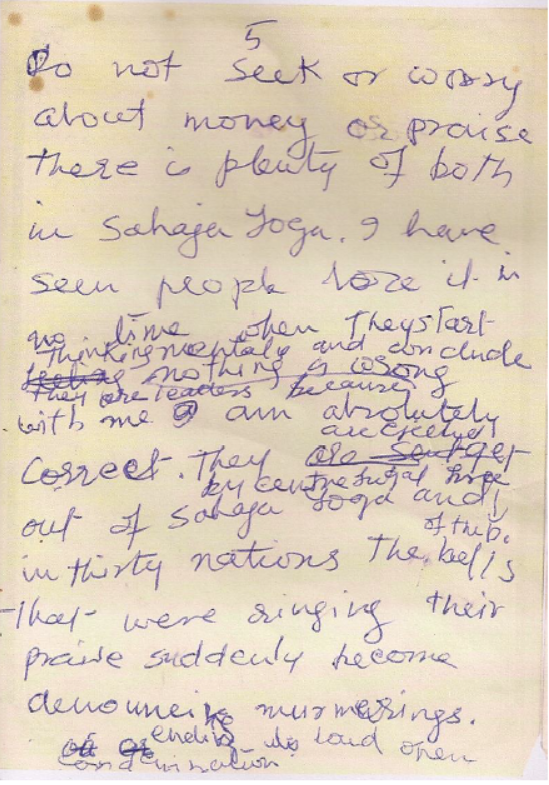 5
Do not seek or worry
about money or praise
there is plenty of both
in Sahaja Yoga. I have
seen people loze it in
no time when They start
Thinking mentaly and conclude
feeling nothing is wrong
they are leaders because
with me I am absolutely
are exected
Correct. They are sent get
by centrefugal force
out of Sahaja Yoga and
of the
in thirty nations The bells
That were ringing their
praise suddenly become
denouncing murmerings.
ending into loud open
condemination